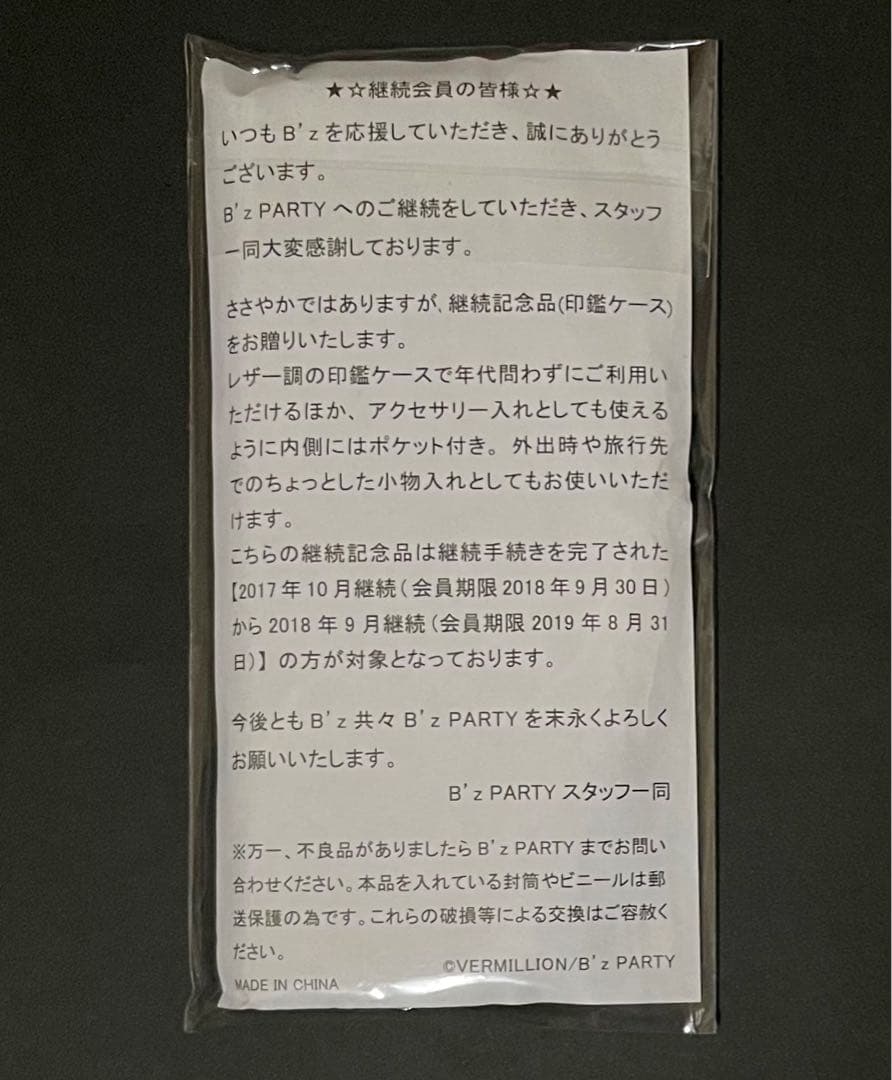 ★☆継続会員の皆様☆★
いつもB'zを応援していただき、誠にありがとう
ございます。
B'z PARTY へのご継続をしていただき、スタッフ
一同大変感謝しております。
ささやかではありますが、継続記念品(印鑑ケース)
をお贈りいたします。
レザー調の印鑑ケースで年代問わずにご利用い
ただけるほか、アクセサリー入れとしても使える
ように内側にはポケット付き。外出時や旅行先
でのちょっとした小物入れとしてもお使いいただ
けます。
こちらの継続記念品は継続手続きを完了された
【2017年10月継続(会員期限2018年9月30日)
から2018年9月継続(会員期限2019年8月31
日)】の方が対象となっております。
今後ともB'z共々B'z PARTYを末永くよろしく
お願いいたします。
B'z PARTY スタッフ一同
※万一、不良品がありましたらB'z PARTYまでお問い
合わせください。本品を入れている封筒やビニールは郵
送保護の為です。これらの破損等による交換はご容赦く
ださい。
©VERMILLION/B'z PARTY
MADE IN CHINA